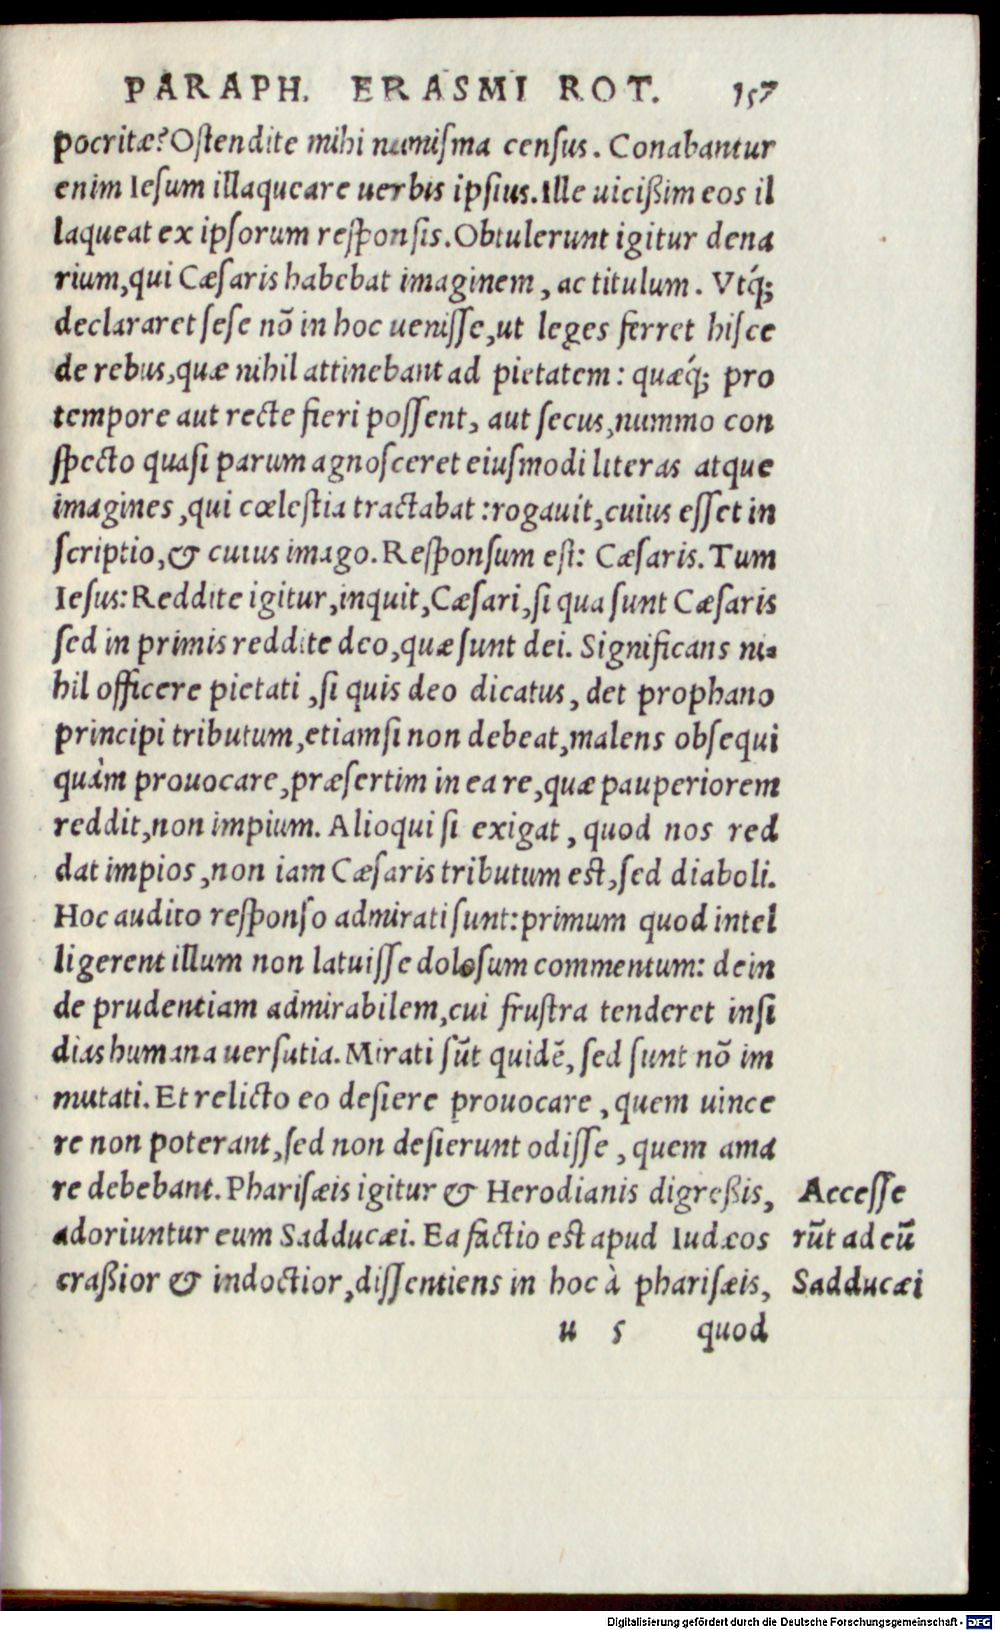 PARAPH. ERASMI ROT. 157
pocritæ? Oſtendite mihi numiſma cenſus. Conabantur
enim Ieſum illaqueare uerbis ipſius. Ille uicißim eos il
laqueat ex ipſorum reſponſis. Obtulerunt igitur dena
rium, qui Cæſaris habebat imaginem, ac titulum. Vtq́;
declararet ſeſe nō in hoc ueniſſe, ut leges ferret hiſce
de rebus, quæ nihil attinebant ad pietatem: quæq́; pro
tempore aut recte fieri poſſent, aut ſecus, nummo con
ſpecto quaſi parum agnoſceret eiuſmodi literas atque
imagines, qui cœleſtia tractabat: rogauit, cuius eſſet in
ſcriptio, & cuius imago. Reſponſum eſt: Cæſaris. Tum
Ieſus: Reddite igitur, inquit, Cæſari, ſi qua ſunt Cæſaris
ſed in primis reddite deo, quæ ſunt dei. Significans ni-
hil officere pietati, ſi quis deo dicatus, det prophano
principi tributum, etiamſi non debeat, malens obſequi
quàm prouocare, præſertim in ea re, quæ pauperiorem
reddit, non impium. Alioqui ſi exigat, quod nos red
dat impios, non iam Cæſaris tributum eſt, ſed diaboli.
Hoc audito reſponſo admirati ſunt: primum quod intel
ligerent illum non latuiſſe doloſum commentum: dein
de prudentiam admirabilem, cui fruſtra tenderet inſi
dias humana uerſutia. Mirati ſūt quidē, ſed ſunt nō im
mutati. Et relicto eo deſiere prouocare, quem uince
re non poterant, ſed non deſierunt odiſſe, quem ama
re debebant. Phariſæis igitur & Herodianis digreßis,
adoriuntur eum Sadducæi. Ea factio eſt apud Iudæos
craßior & indoctior, diſſentiens in hoc à phariſæis,
Acceſſe
rūt ad eū
Sadducæi
u 5 quod
Digitalisierung gefördert durch die Deutsche Forschungsgemeinschaft - DFG